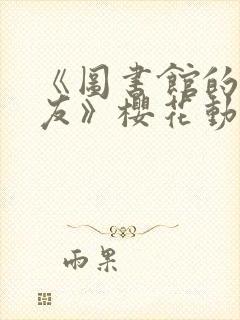 《圖書館的
友》櫻花動
雨果